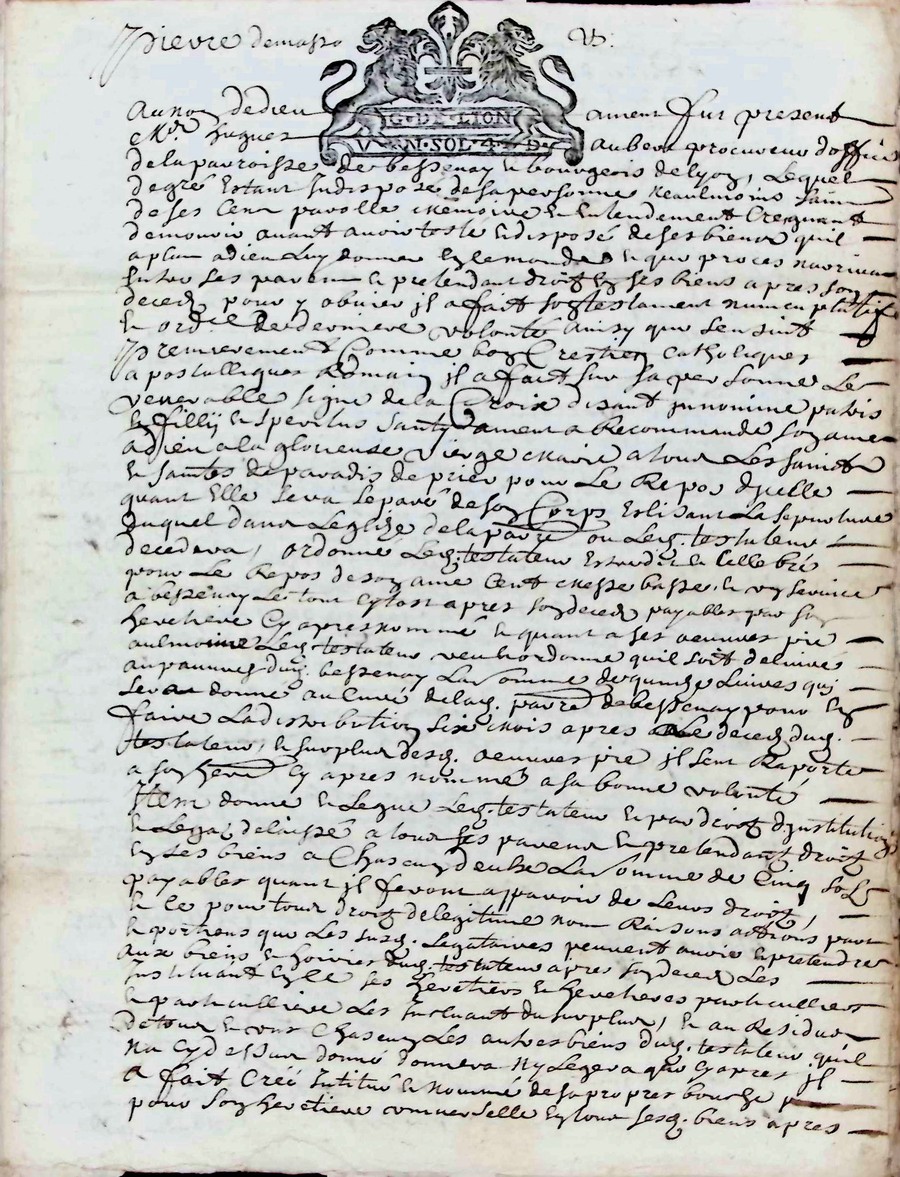 pierre demasso
G·DE·LION
V N·SOL·4·D·
Au nom de dieu amen fut present
Mr. hugues aubert procureur d'offic
de la parroisse de bessenay & bourgeois de lyon, Lequel
de gré Estant Indisposé de sa personne Neaulmoins sain
de ses Cens parolle memoire & Entendement Creignant
de mourir avant avoir testé & disposé de ses biens quil
a plau a dieu luy donner En ce monde & que proces narrive
Entre ses parens & pretendant droit En ses biens apres son
deced pour y obvier jl a fait son testament nuncupatif
& ordce de derniere volonté Ainsy que sensuit
premierement Comme bon Crestien catholiques
apostolliques Romain jl a fait sur sa personne Le
venerable signe de la Croix disant jnnomine patris
& fillij & speritus santy amen a Recommandé son ame
a dieu a la glorieuse vierge marie a tous Les saints
& saintes de paradis de prier pour Le Repos djcelle
quant Elle sera separé de son Corps Eslisant La sepulture
duquel dans Leglize de la parre ou Led. testateur
decedera, ordonne Led. testateur Estre dit & Cellebré
pour Le Repos de son ame Cent messe basse & un service
a bessenay Le tout sytost apres son deced payables par sa
heretiere Cy apres nommé & quant a ses oeuvres pie
aulmoines Led. testateur veut & ordonne quil soit delivré
au pauvres dud. bessenay La somme de quinze Livres qui
sera donné au Curé de lad. parre de bessenay pour En
faire La distribution six mois apres Le deced dud.
testateur, & surplus desd. oeuvres pie jl sen Raporte
a son hered cy apres nommé a sa bonne volonté
Item donne & Legue Led. testateur & par droit djnstitution
& Legat delaissé a tous ses parens & pretendant droit
En ses biens a Chascun deulx La somme de Cinq sols
payables quant jl feront apparoir de Leurs droit,
& ce pour tous droit de legitime nom Raisons actions part
& portions que Les susd. Legataires peuvent avoir & pretendre
aux biens & hoiries dud. testateur apres son deced Les
Instituant En ce ses heretiers & heretieres particulliers
& particulliere Les Excluant du surplus, & au Residu
de tous & uns Chascun Les autres biens dud. testateur quil
Na cy dessus donné donnera Ny Leguera cy apres jl
a fait Créé Institué & Nommé de sa propres bouche
pour Son heretiere universelle En tous sesd. biens apres